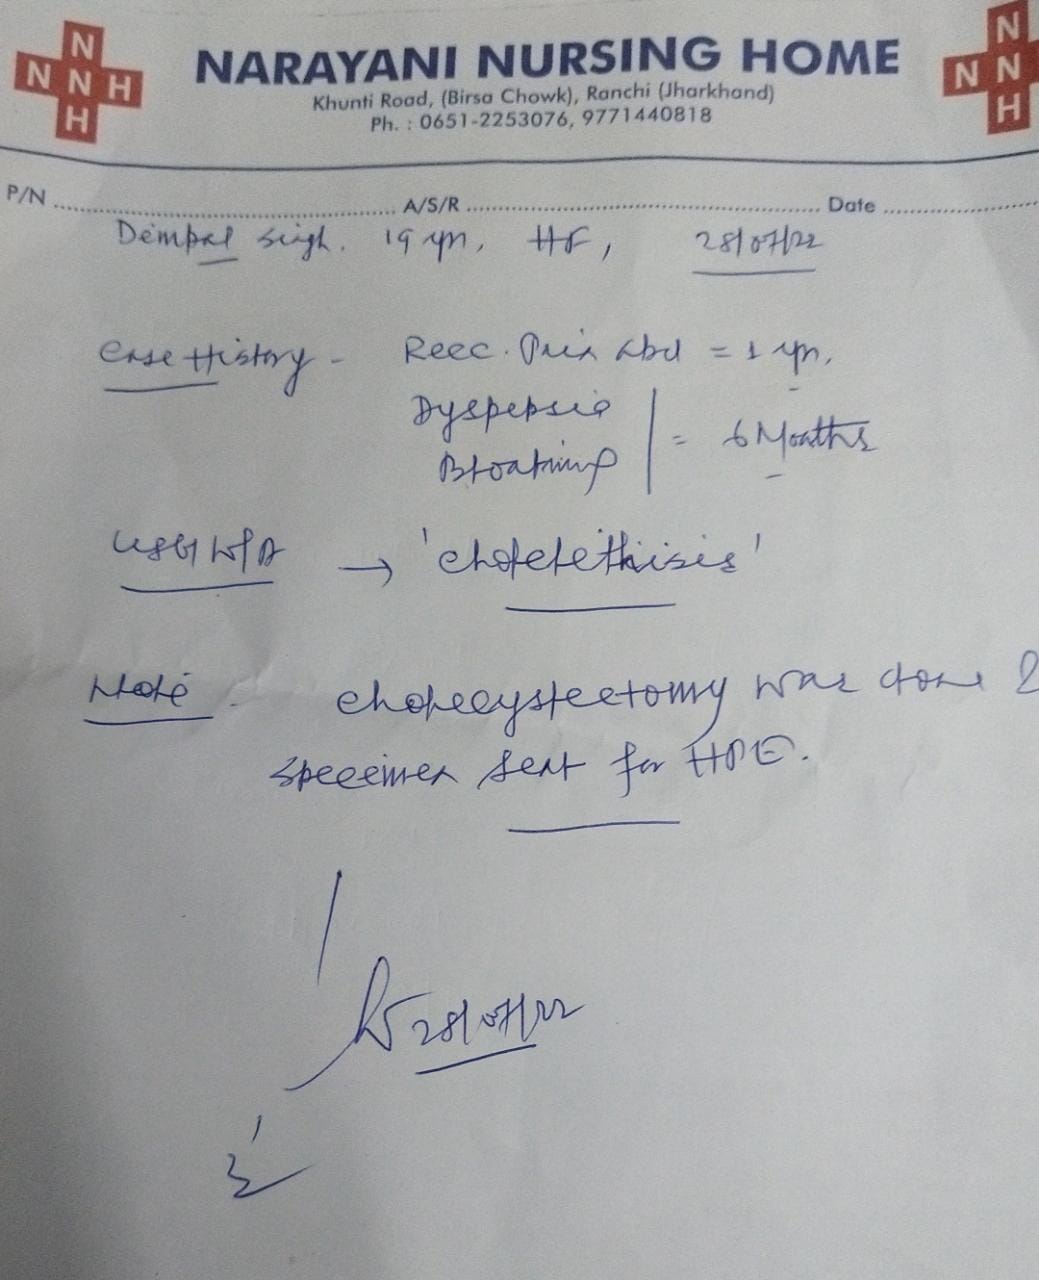 N
N N H
H
NARAYANI NURSING HOME
N
N N
H
Khunti Road, (Birsa Chowk), Ranchi (Jharkhand)
Ph. : 0651-2253076, 9771440818
P/N ........ A/S/R ........ Date ........
Dempal Singh. 19 yrs, HF, 28/07/22
Case History - Recc. Pain Abd = 1 yr.
Dyspepsia
Bloating = 6 Months
USG W/A → 'Cholelethisis'
Note - Cholecystectomy was done &
specimen sent for HPE.
28/07/22